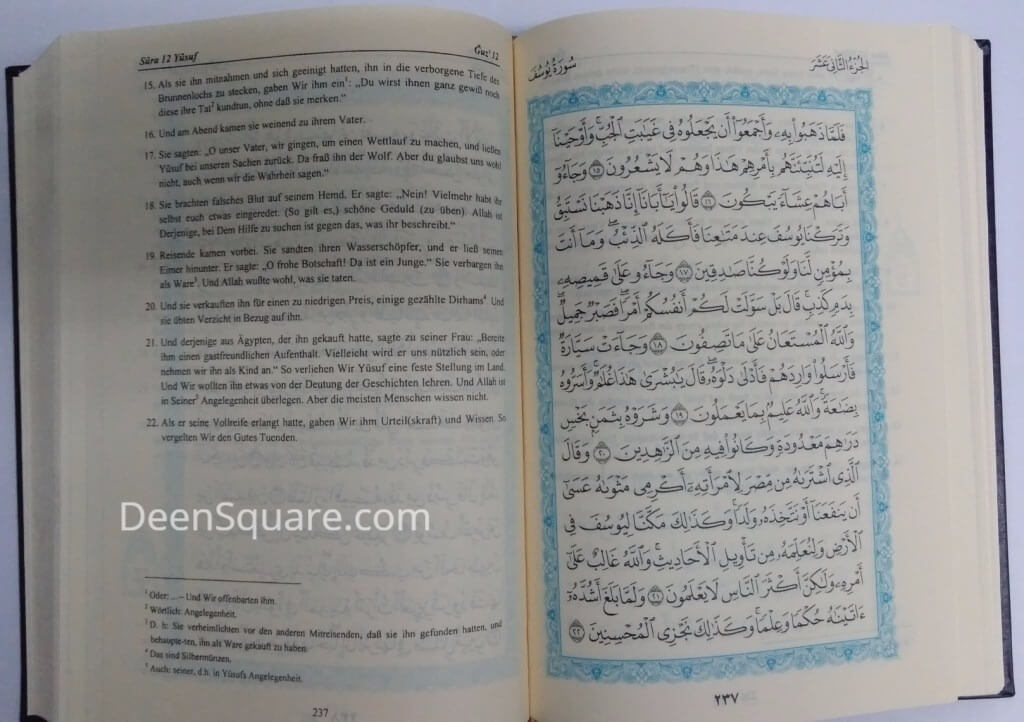 Sūra 12 Yūsuf
Ǧuz' 12
15. Als sie ihn mitnahmen und sich geeinigt hatten, ihn in die verborgene Tiefe des
Brunnenlochs zu stecken, gaben Wir ihm ein¹: „Du wirst ihnen ganz gewiß noch
diese ihre Tat² kundtun, ohne daß sie merken.“
16. Und am Abend kamen sie weinend zu ihrem Vater.
17. Sie sagten: „O unser Vater, wir gingen, um einen Wettlauf zu machen, und ließen
Yūsuf bei unseren Sachen zurück. Da fraß ihn der Wolf. Aber du glaubst uns wohl
nicht, auch wenn wir die Wahrheit sagen.“
18. Sie brachten falsches Blut auf seinem Hemd. Er sagte: „Nein! Vielmehr habt ihr
selbst euch etwas eingeredet. (So gilt es,) schöne Geduld (zu üben). Allah ist
Derjenige, bei Dem Hilfe zu suchen ist gegen das, was ihr beschreibt.“
19. Reisende kamen vorbei. Sie sandten ihren Wasserschöpfer, und er ließ seinen
Eimer hinunter. Er sagte: „O frohe Botschaft! Da ist ein Junge.“ Sie verbargen ihn
als Ware³. Und Allah wußte wohl, was sie taten.
20. Und sie verkauften ihn für einen zu niedrigen Preis, einige gezählte Dirhams⁴ Und
sie übten Verzicht in Bezug auf ihn.
21. Und derjenige aus Ägypten, der ihn gekauft hatte, sagte zu seiner Frau: „Bereite
ihm einen gastfreundlichen Aufenthalt. Vielleicht wird er uns nützlich sein, oder
nehmen wir ihn als Kind an.“ So verliehen Wir Yūsuf eine feste Stellung im Land.
Und Wir wollten ihn etwas von der Deutung der Geschichten lehren. Und Allah ist
in Seiner⁵ Angelegenheit überlegen. Aber die meisten Menschen wissen nicht.
22. Als er seine Vollreife erlangt hatte, gaben Wir ihm Urteil(skraft) und Wissen. So
vergelten Wir den Gutes Tuenden.
DeenSquare.com
¹ Oder: ... – Und Wir offenbarten ihm.
² Wörtlich: Angelegenheit.
³ D. h: Sie verheimlichten vor den anderen Mitreisenden, daß sie ihn gefunden hatten, und
behaupte-ten, ihn als Ware gekauft zu haben.
⁴ Das sind Silbermünzen.
⁵ Auch: seiner, d.h. in Yūsufs Angelegenheit.
237
الجُزْءُ الثَّانِي عَشَرَ
سُورَةُ يُوسُفَ
فَلَمَّا ذَهَبُوا۟ بِهِۦ وَأَجْمَعُوٓا۟ أَن يَجْعَلُوهُ فِى غَيَٰبَتِ ٱلْجُبِّ ۚ وَأَوْحَيْنَآ
إِلَيْهِ لَتُنَبِّئَنَّهُم بِأَمْرِهِمْ هَٰذَا وَهُمْ لَا يَشْعُرُونَ ١٥ وَجَآءُوٓ
أَبَاهُمْ عِشَآءً يَبْكُونَ ١٦ قَالُوا۟ يَٰٓأَبَانَآ إِنَّا ذَهَبْنَا نَسْتَبِقُ
وَتَرَكْنَا يُوسُفَ عِندَ مَتَٰعِنَا فَأَكَلَهُ ٱلذِّئْبُ ۖ وَمَآ أَنتَ
بِمُؤْمِنٍ لَّنَا وَلَوْ كُنَّا صَٰدِقِينَ ١٧ وَجَآءُو عَلَىٰ قَمِيصِهِۦ
بِدَمٍ كَذِبٍ ۚ قَالَ بَلْ سَوَّلَتْ لَكُمْ أَنفُسُكُمْ أَمْرًا ۖ فَصَبْرٌ جَمِيلٌ ۖ
وَٱللَّهُ ٱلْمُسْتَعَانُ عَلَىٰ مَا تَصِفُونَ ١٨ وَجَآءَتْ سَيَّارَةٌ
فَأَرْسَلُوا۟ وَارِدَهُمْ فَأَدْلَىٰ دَلْوَهُۥ ۖ قَالَ يَٰبُشْرَىٰ هَٰذَا غُلَٰمٌ ۚ وَأَسَرُّوهُ
بِضَٰعَةً ۚ وَٱللَّهُ عَلِيمٌۢ بِمَا يَعْمَلُونَ ١٩ وَشَرَوْهُ بِثَمَنٍۭ بَخْسٍ
دَرَٰهِمَ مَعْدُودَةٍ وَكَانُوا۟ فِيهِ مِنَ ٱلزَّٰهِدِينَ ٢٠ وَقَالَ
ٱلَّذِى ٱشْتَرَىٰهُ مِن مِّصْرَ لِٱمْرَأَتِهِۦٓ أَكْرِمِى مَثْوَىٰهُ عَسَىٰٓ
أَن يَنفَعَنَآ أَوْ نَتَّخِذَهُۥ وَلَدًا ۚ وَكَذَٰلِكَ مَكَّنَّا لِيُوسُفَ فِى
ٱلْأَرْضِ وَلِنُعَلِّمَهُۥ مِن تَأْوِيلِ ٱلْأَحَادِيثِ ۚ وَٱللَّهُ غَالِبٌ عَلَىٰٓ
أَمْرِهِۦ وَلَٰكِنَّ أَكْثَرَ ٱلنَّاسِ لَا يَعْلَمُونَ ٢١ وَلَمَّا بَلَغَ أَشُدَّهُۥٓ
ءَاتَيْنَٰهُ حُكْمًا وَعِلْمًا ۚ وَكَذَٰلِكَ نَجْزِى ٱلْمُحْسِنِينَ ٢٢
٢٣٧